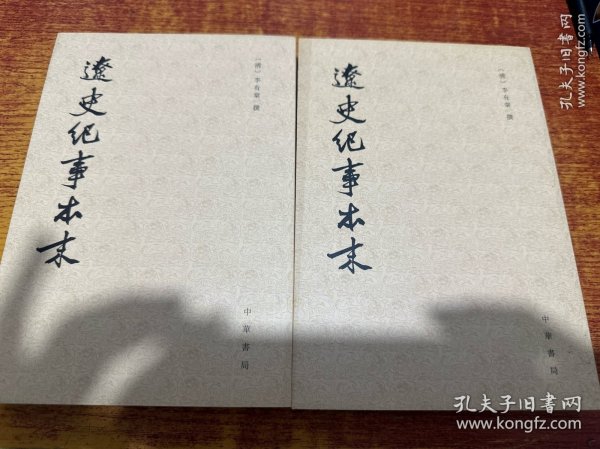 遼史纪事本末
〔清〕李有棠 撰
中華書局
遼史纪事本末
〔清〕李有棠 撰
中華書局
孔夫子旧书网
孔夫子旧书网
www.kongfz.com